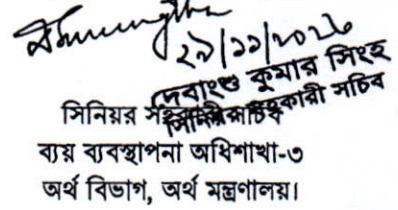 ২৯/১১/২০২৬
দেবাংশু কুমার সিংহ
সিনিয়র সহকারী সচিব
সিনিয়র সহকারী সচিব
ব্যয় ব্যবস্থাপনা অধিশাখা-৩
অর্থ বিভাগ, অর্থ মন্ত্রণালয়।